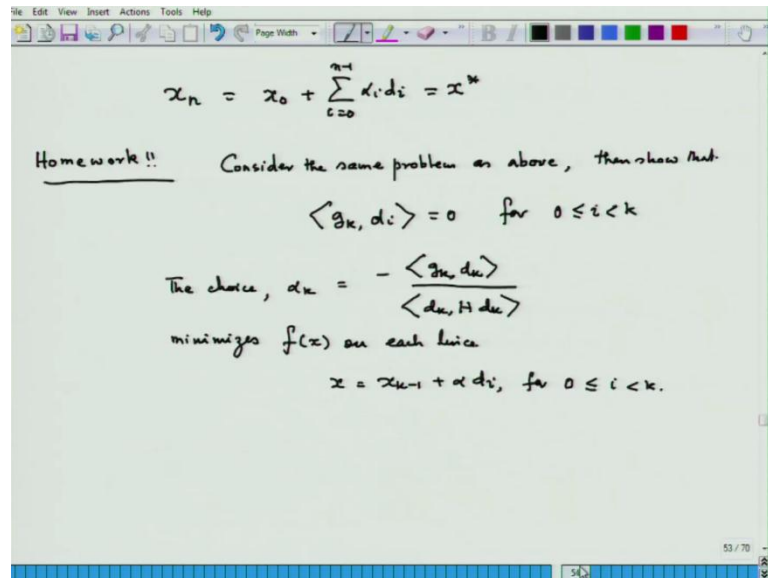 File Edit View Insert Actions Tools Help
Page Width
B I
xₙ = x₀ + ∑_{i=0}^{n-1} αᵢdᵢ = x*
Homework!! Consider the same problem as above, then show that
⟨gₖ, dᵢ⟩ = 0 for 0 ≤ i < k
The choice, αₖ = - ⟨gₖ, dₖ⟩ / ⟨dₖ, H dₖ⟩
minimizes f(x) on each line
x = xₖ₋₁ + α dᵢ, for 0 ≤ i < k.
53 / 70